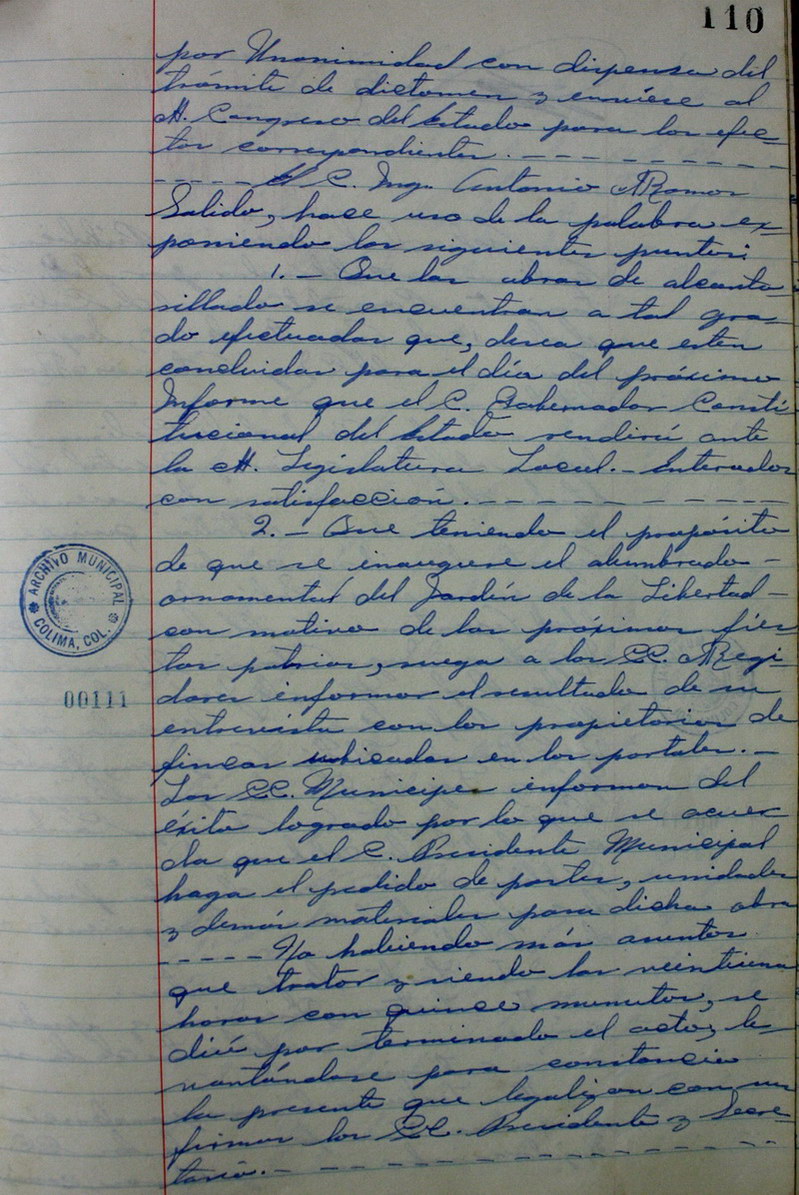 110
por Unanimidad con dispensa del
trámite de dictamen y envíese al
H. Congreso del Estado para los efec-
tos correspondientes. - - - - - - - - -
- - - - - El C. Ing. Antonio Ramos
Salido, hace uso de la palabra ex-
poniendo los siguientes puntos:
1. - Que las obras de alcanta-
rillado se encuentran a tal gra-
do efectuadas que, desea que esten
concluidas para el día del próximo
Informe que el C. Gobernador Consti-
tucional del Estado rendirá ante
la H. Legislatura Local. - Enterados
con satisfacción. - - - - - - - - - -
2. - Que teniendo el propósito
de que se inaugure el alumbrado -
ornamental del Jardín de la Libertad -
con motivo de las próximas fies-
tas patrias, ruega a los CC. Regi-
dores informar el resultado de su
entrevista con los propietarios de
fincas ubicadas en los portales. -
Los CC. Municipes informan del
éxito logrado por lo que se acuer-
da que el C. Presidente Municipal
haga el pedido de postes, unidades
y demás materiales para dicha obra
- - - - - No habiendo más asuntos
que tratar y siendo las veintiuna
horas con quince minutos, se
dió por terminado el acto, le-
vantándose para constancia
la presente que legalizan con sus
firmas los CC. Presidente y Secre-
tario. - - - - - - - - - - - - - -
ARCHIVO MUNICIPAL
COLIMA, COL.
00111